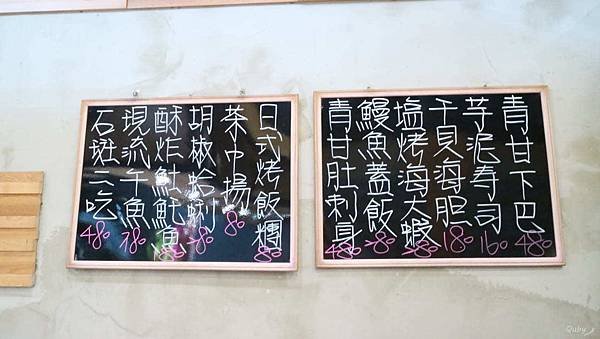 青甘下巴 480
芋泥壽司 160
干貝海胆 180
塩烤海大蝦 280
鰻魚蓋飯 280
青甘肚刺身 480
日式烤飯糰 80
茶巾場 80
胡椒蛤蜊 280
酥炸魟魠魚
現流午魚 280
石斑三吃 480
Quby